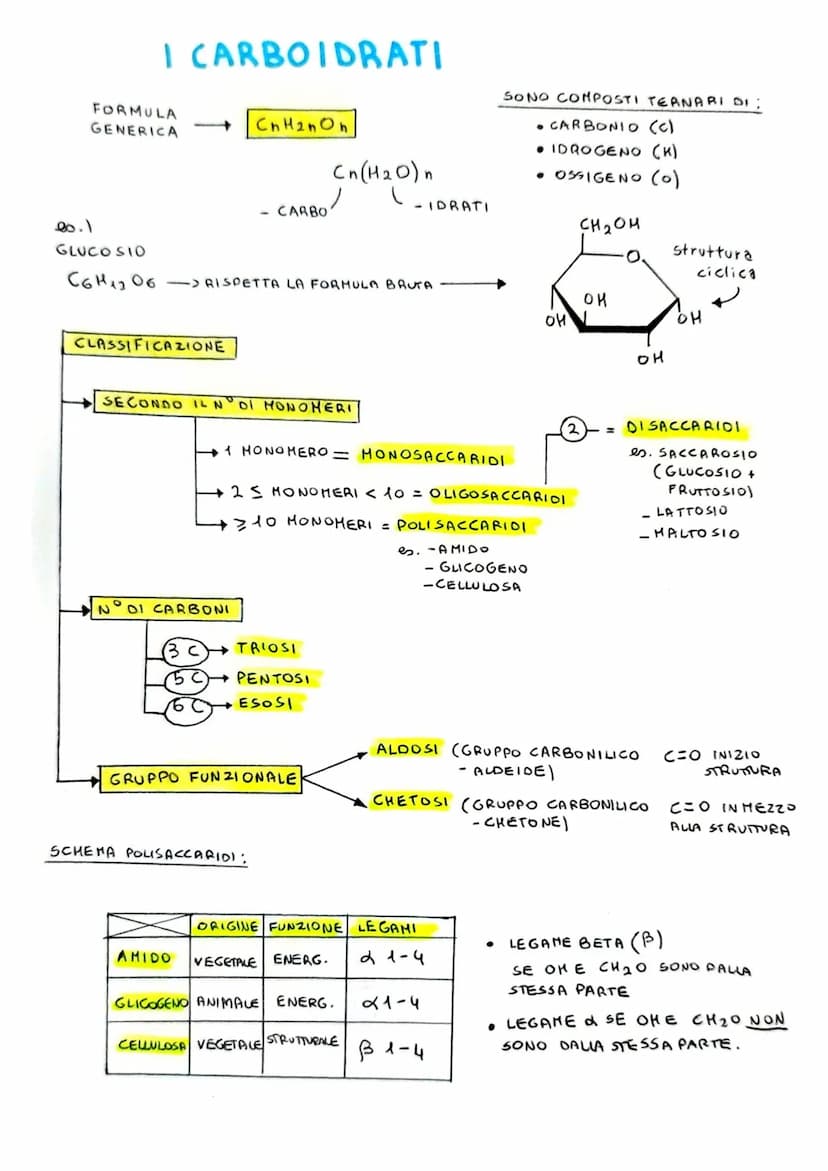 I CARBOIDRATI
FORMULA
GENERICA → CnH2nOn
SONO COMPOSTI TERNARI DI:
• CARBONIO (C)
• IDROGENO (H)
• OSSIGENO (O)
Cn(H2O)n
- CARBO
- IDRATI
es.1
GLUCOSIO
C6H12O6 → RISPETTA LA FORMULA BRUTA →
CH2OH
O
OH
OH
OH
OH
struttura
ciclica
CLASSIFICAZIONE
SECONDO IL N° DI MONOMERI
→ 1 MONOMERO = MONOSACCARIDI
→ 2 ≤ MONOMERI < 10 = OLIGOSACCARIDI
2 = DISACCARIDI
es. SACCAROSIO
(GLUCOSIO +
FRUTTOSIO)
- LATTOSIO
- MALTOSIO
→ ≥10 MONOMERI = POLISACCARIDI
es. - AMIDO
- GLICOGENO
- CELLULOSA
N° DI CARBONI
3 C → TRIOSI
5 C → PENTOSI
6 C → ESOSI
GRUPPO FUNZIONALE
ALDOSI (GRUPPO CARBONILICO C=O INIZIO
- ALDEIDE) STRUTTURA
CHETOSI (GRUPPO CARBONILICO C=O IN MEZZO
- CHETONE) ALLA STRUTTURA
SCHEMA POLISACCARIDI:
ORIGINE FUNZIONE LEGAMI
AMIDO VEGETALE ENERG. α 1-4
GLICOGENO ANIMALE ENERG. α 1-4
CELLULOSA VEGETALE STRUTTURALE β 1-4
• LEGAME BETA (β)
SE OH E CH2O SONO DALLA
STESSA PARTE
• LEGAME α SE OH E CH2O NON
SONO DALLA STESSA PARTE.